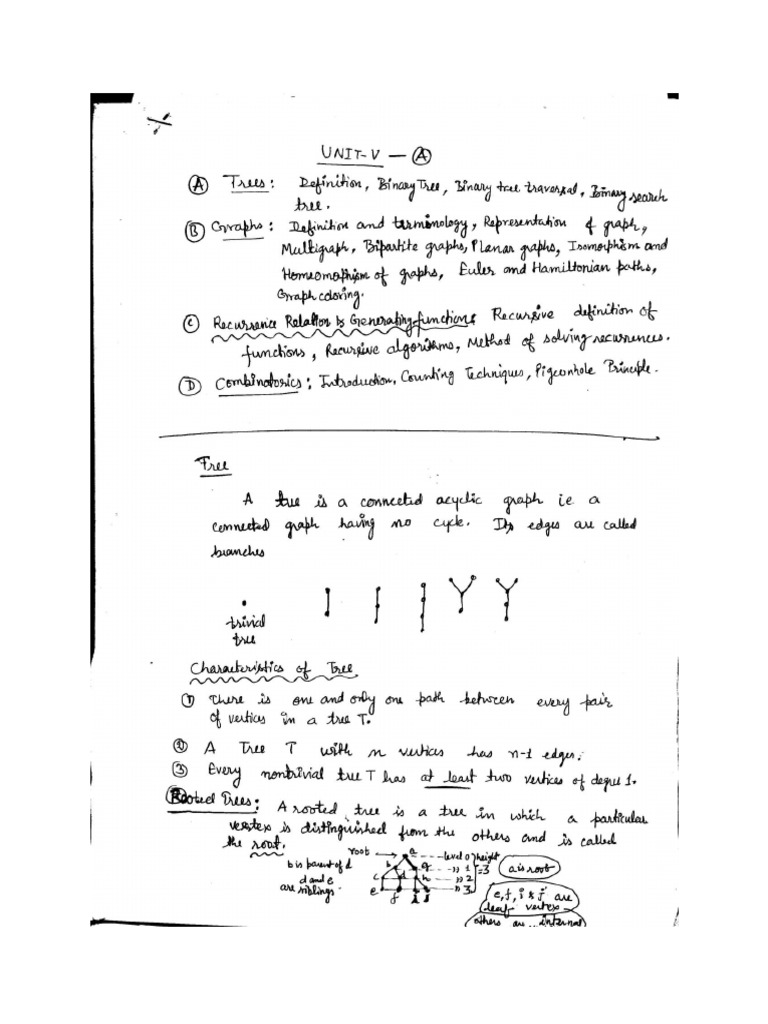 UNIT-V — Ⓐ
Ⓐ Trees: Definition, Binary Tree, Binary tree traversal, Binary search
tree.
Ⓑ Graphs: Definition and terminology, Representation of graph,
Multigraph, Bipartite graphs, Planar graphs, Isomorphism and
Homeomorphism of graphs, Euler and Hamiltonian paths,
Graph coloring.
Ⓒ Recurrence Relation & Generating functions: Recursive definition of
functions, Recursive algorithms, Method of solving recurrences.
Ⓓ Combinatorics: Introduction, Counting Techniques, Pigeonhole Principle.
Tree
A tree is a connected acyclic graph ie a
connected graph having no cycle. Its edges are called
branches
trivial
tree
Characteristics of Tree
① There is one and only one path between every pair
of vertices in a tree T.
② A Tree T with n vertices has n-1 edges.
③ Every nontrivial tree T has at least two vertices of degree 1.
Rooted Trees: A rooted tree is a tree in which a particular
vertex is distinguished from the others and is called
the root.
root a level 0 height
b is parent of d b g 1 =3 a is root
d and e c d h 2
are siblings e f i j 3
e, f, i & j are
leaf vertex
others are internal